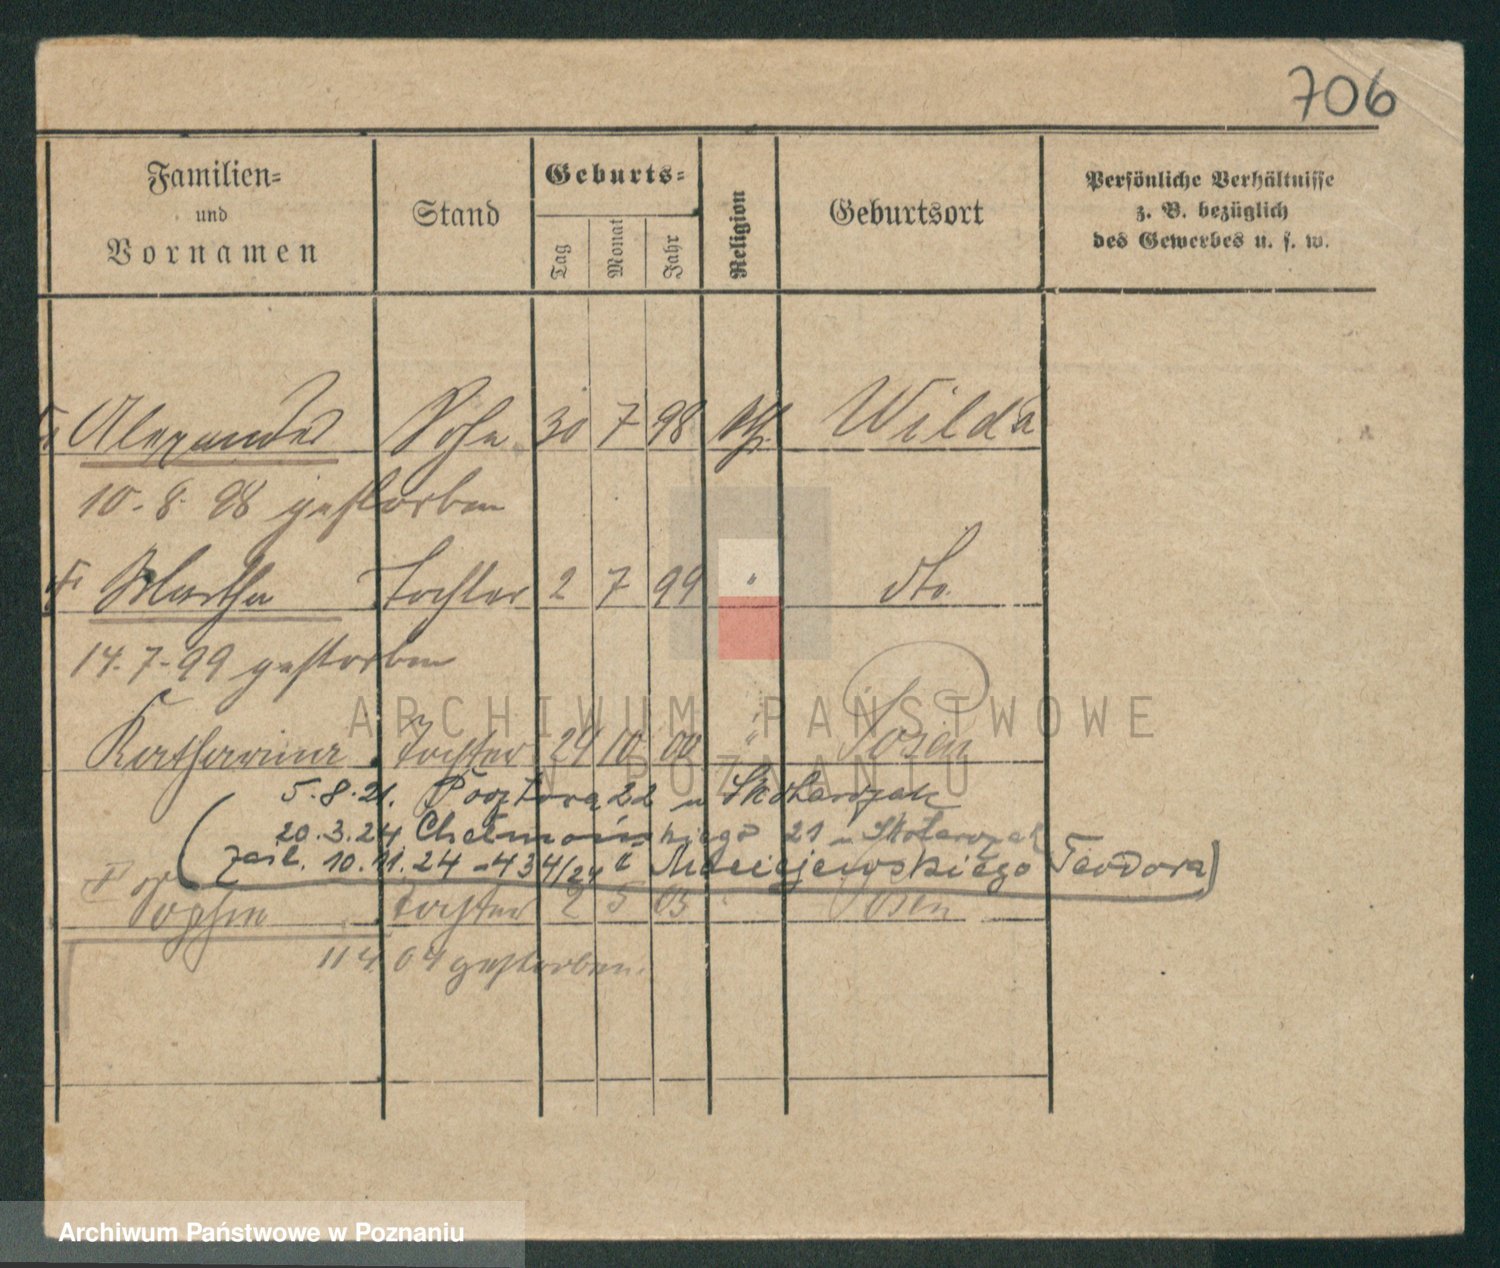 706
Familien- und Vornamen Stand Geburts- Tag Monat Jahr Religion Geburtsort Persönliche Verhältnisse z. B. bezüglich des Gewerbes u. s. w.
Alexander Sohn 30 7 98 Wilda
10.8.98 gestorben
Martha Tochter 2 7 99 " dto.
14.7.99 gestorben
ARCHIWUM PAŃSTWOWE
Katharina Tochter 29 10 00 " Posen
W POZNANIU
5.8.21. 22 u Skotarczak
20.3.24 Chełmońskiego 21 u Skotarczak
zaśl. 10.11.24 - 434/24 Maciejewskiego Teodora
Sophie Tochter 2 5 03 " Posen
11 4 04 gestorben.
Archiwum Państwowe w Poznaniu